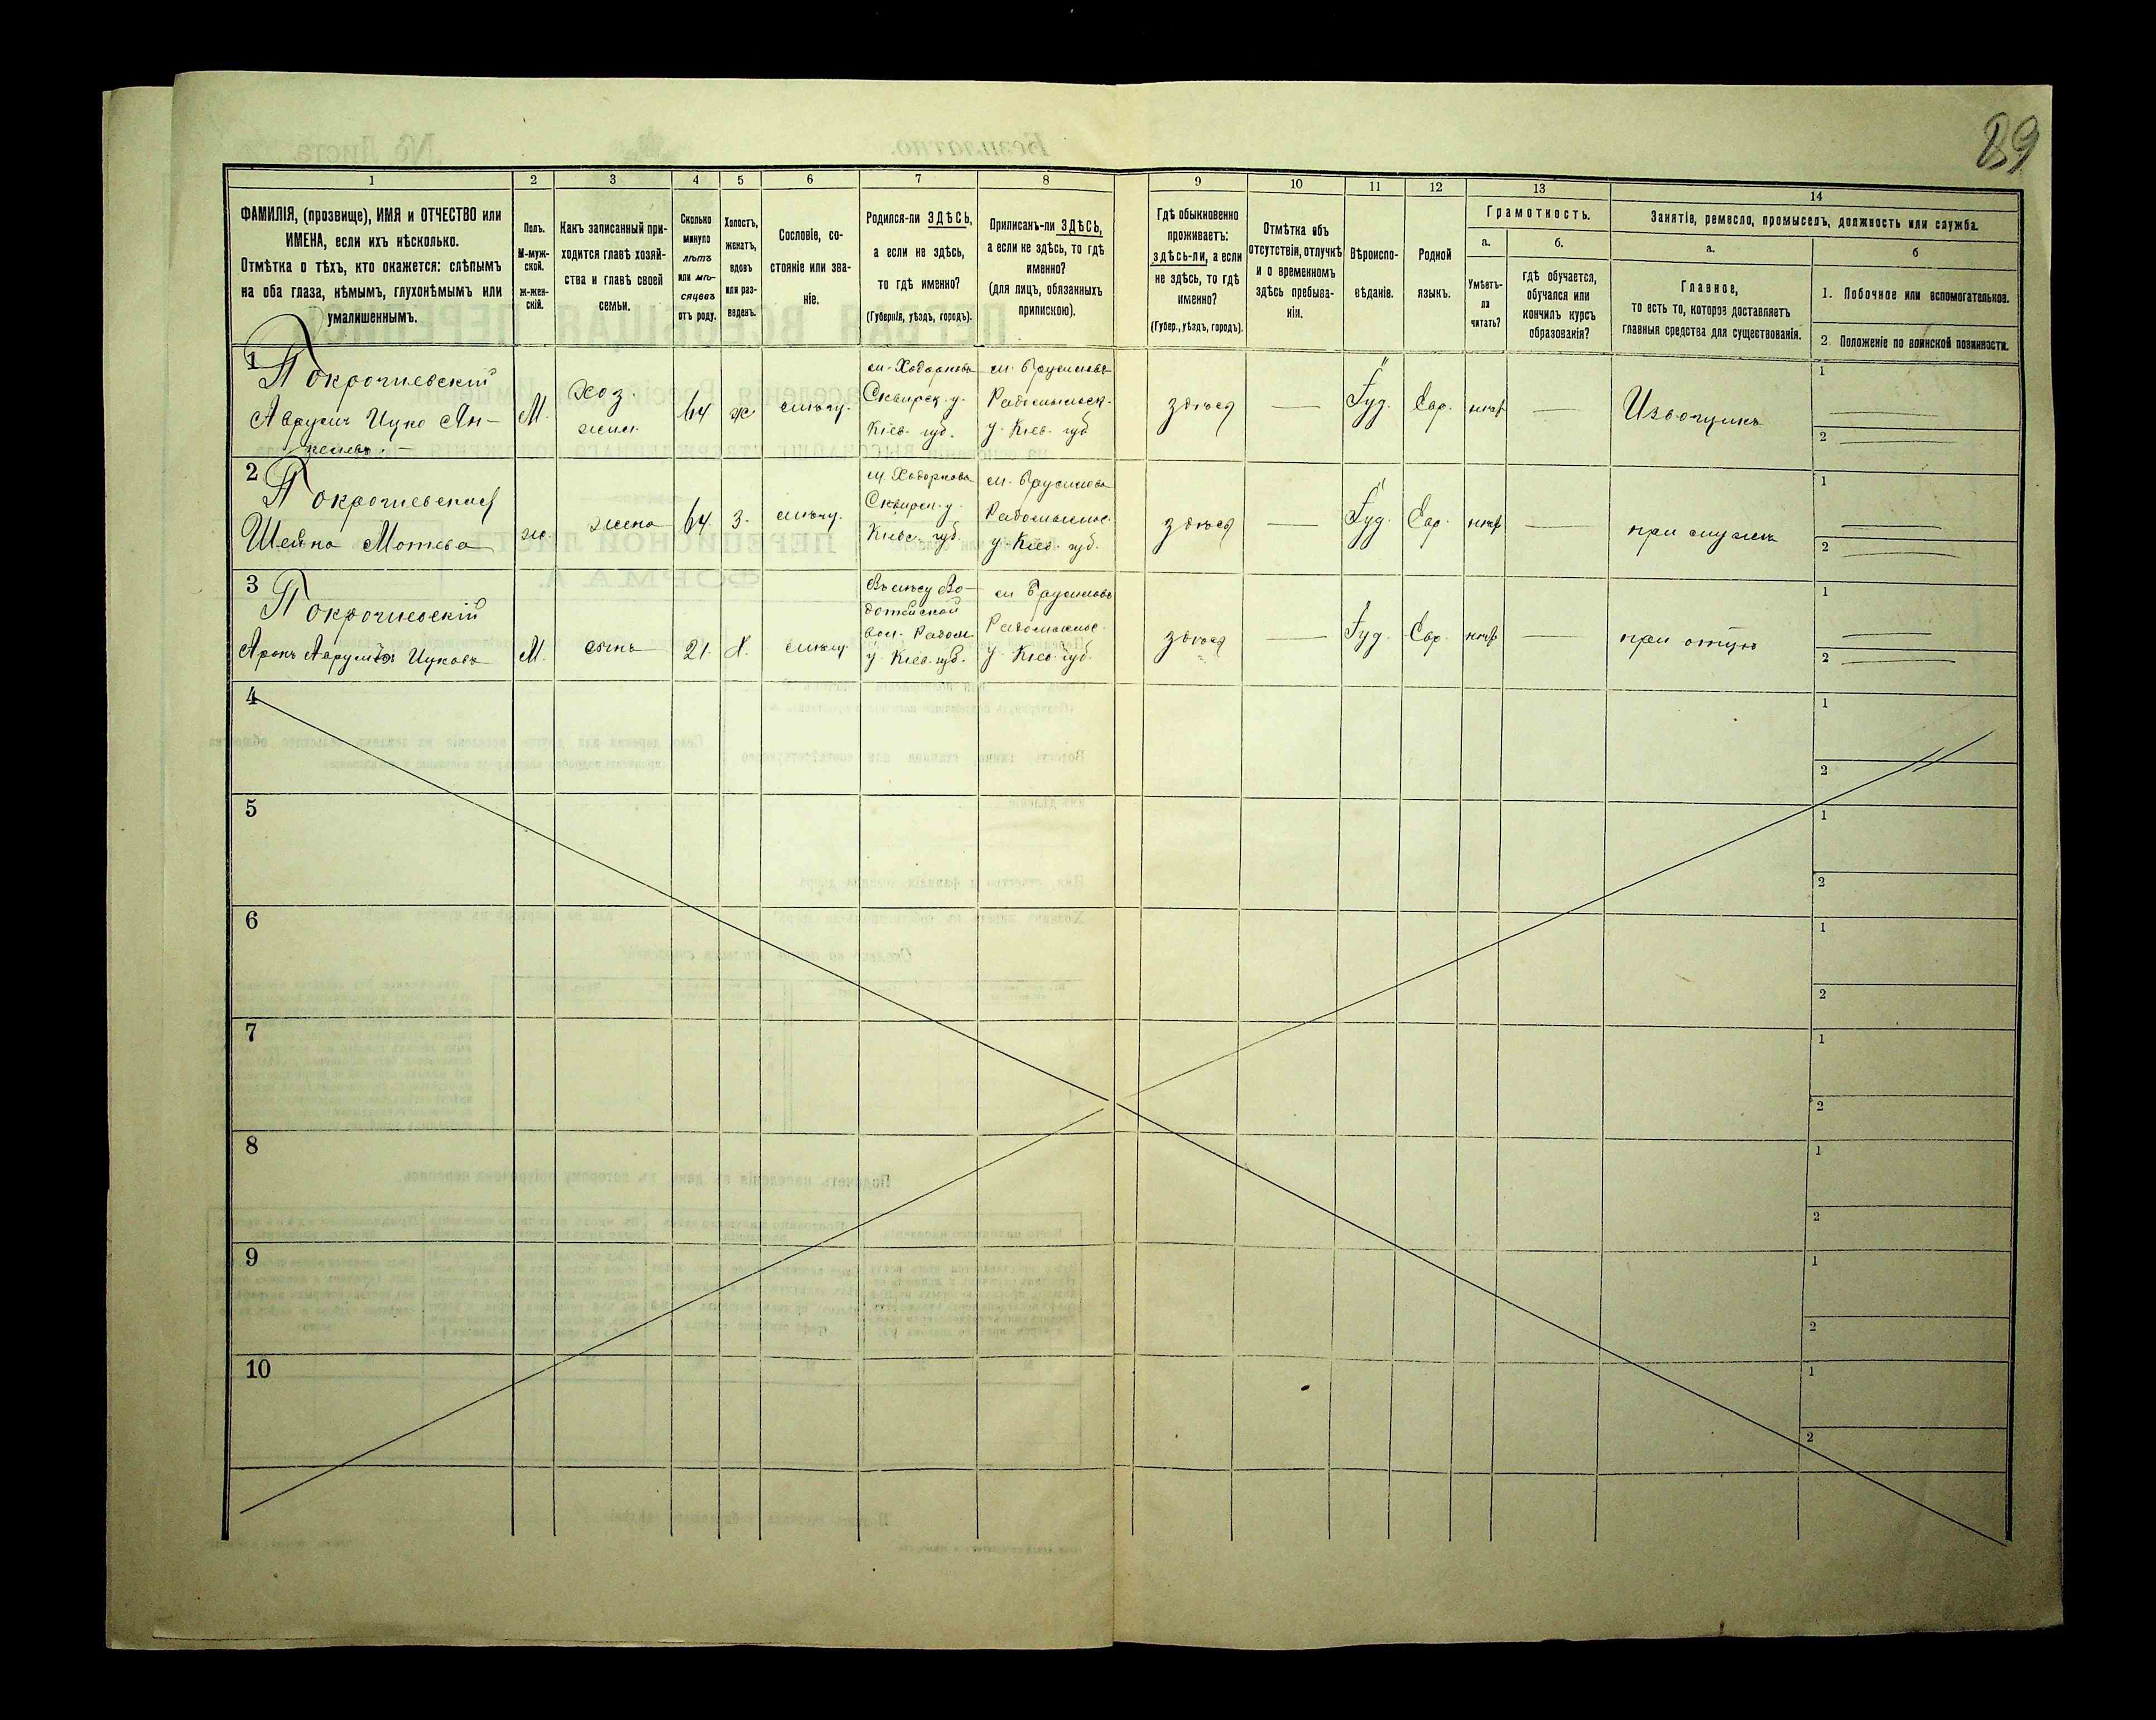 89
1 2 3 4 5 6 7 8 9 10 11 12 13 14
ФАМИЛІЯ, (прозвище), ИМЯ и ОТЧЕСТВО или
ИМЕНА, если ихъ нѣсколько.
Отмѣтка о тѣхъ, кто окажется: слѣпымъ
на оба глаза, нѣмымъ, глухонѣмымъ или
умалишеннымъ.
Полъ.
М-муж-
ской.
ж-жен-
скій.
Какъ записанный при-
ходится главѣ хозяй-
ства и главѣ своей
семьи.
Сколько
минуло
лѣтъ
или мѣ-
сяцевъ
отъ роду.
Холостъ,
женатъ,
вдовъ
или раз-
веденъ.
Сословіе, со-
стояніе или зва-
ніе.
Родился-ли ЗДѢСЬ,
а если не здѣсь,
то гдѣ именно?
(Губернія, уѣздъ, городъ).
Приписанъ-ли ЗДѢСЬ,
а если не здѣсь, то гдѣ
именно?
(для лицъ, обязанныхъ
припискою).
Гдѣ обыкновенно
проживаетъ:
здѣсь-ли, а если
не здѣсь, то гдѣ
именно?
(Губер., уѣздъ, городъ).
Отмѣтка объ
отсутствіи, отлучкѣ
и о временномъ
здѣсь пребыва-
ніи.
Вѣроиспо-
вѣданіе.
Родной
языкъ.
Грамотность.
а.
Умѣетъ-
ли
читать?
б.
гдѣ обучается,
обучался или
кончилъ курсъ
образованія?
Занятіе, ремесло, промыселъ, должность или служба.
а.
Главное,
то есть то, которое доставляетъ
главныя средства для существованія.
б
1. Побочное или вспомогательное.
2. Положеніе по воинской повинности.
1
Покрочиевскій
Аврумъ Ицко Ян-
М. хоз. 64 ж. мѣщ.
м. Ходоркова
Сквирск. у.
Кіев. губ.
м. Брусиловъ
Радомысльск.
у. Кіев. губ
здѣсь — Іуд. Евр. — Извощикъ
1
2
2
Покрочиевская
Шейна Мотева
ж. жена 64. З. мѣщ.
м. Ходоркова
Сквирск. у.
Кіевс. губ.
м. Брусилова
Радомысльс.
у. Кіев. губ.
здѣсь — Іуд. Евр. — при мужѣ
1
2
3
Покрочиевскій
Аронъ Аврумъ Ицковъ
М. сынъ 21. Х. мѣщ.
вол. Радом.
у. Кіев. губ.
м Брусиловъ
Радомысльс.
у. Кіев. губ.
здѣсь — Іуд. Евр. — при отцѣ
1
2
4
1
2
5
1
2
6
1
2
7
1
2
8
1
2
9
1
2
10
1
2